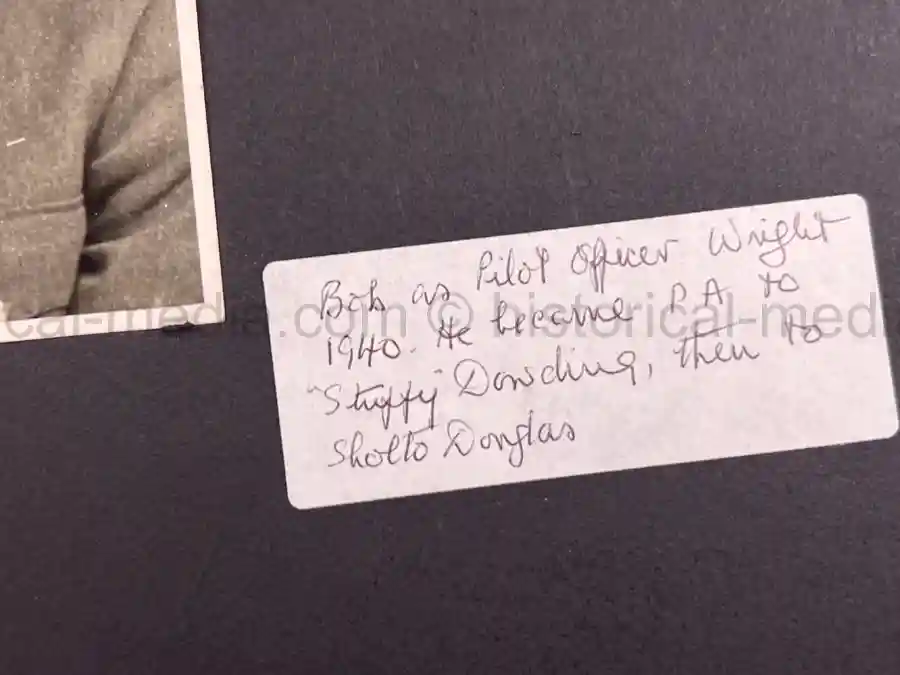 Bob as Pilot Officer Wright
1940. He became P.A to
"Stuffy" Dowding, then to
Sholto Douglas
cal-media.com © historical-medi